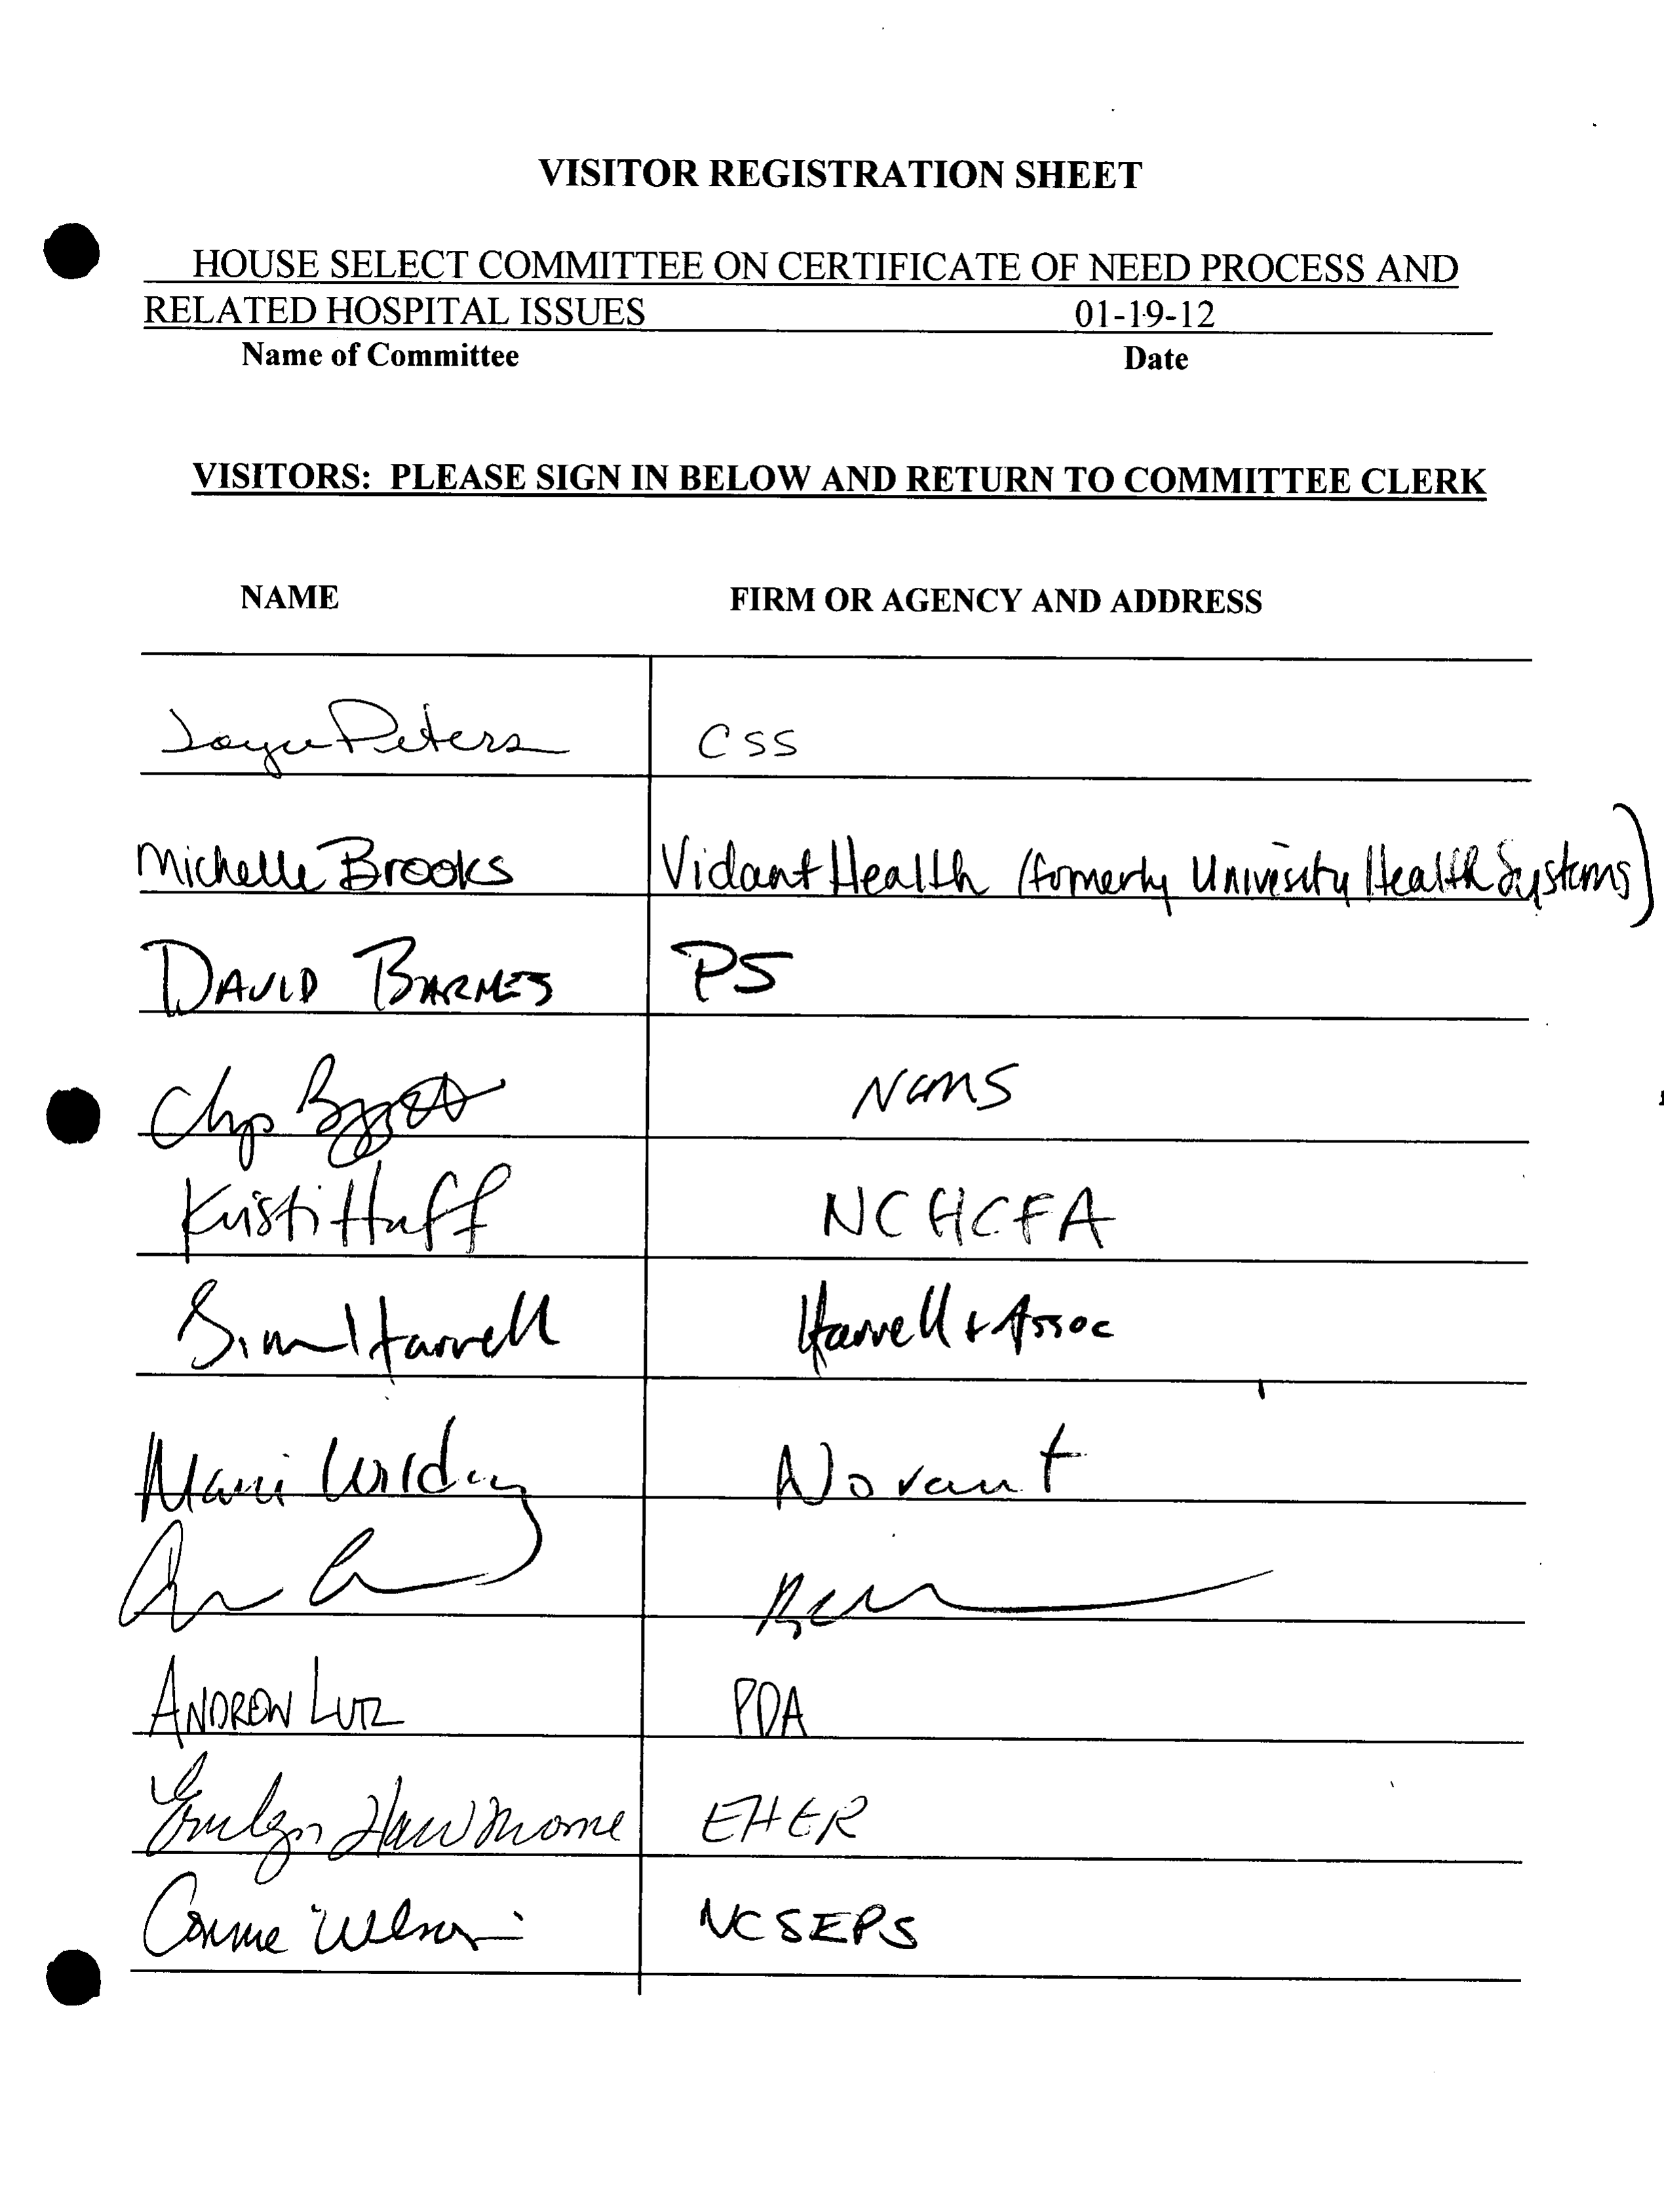 VISITOR REGISTRATION SHEET
HOUSE SELECT COMMITTEE ON CERTIFICATE OF NEED PROCESS AND
RELATED HOSPITAL ISSUES 01-19-12
Name of Committee Date
VISITORS: PLEASE SIGN IN BELOW AND RETURN TO COMMITTEE CLERK
NAME FIRM OR AGENCY AND ADDRESS
Peters CSS
Michelle Brooks Vidant Health (formerly Univisity Health Systems)
DAVID BARNES PS
Chip NCMS
Kristi Huff NCHCFA
Harrell Harrell + Assoc
Novant
ANDREW LUTZ PDA
Hawthorne EHER
Connie Wilson NCSEPS